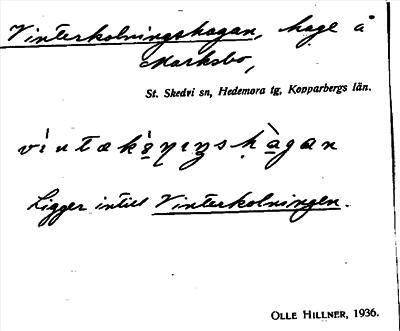 Vinterkolningshagan, hage å
Marksbo,
St. Skedvi sn, Hedemora tg, Kopparbergs län.
Ligger intill Vinterkolningen.
OLLE HILLNER, 1936.